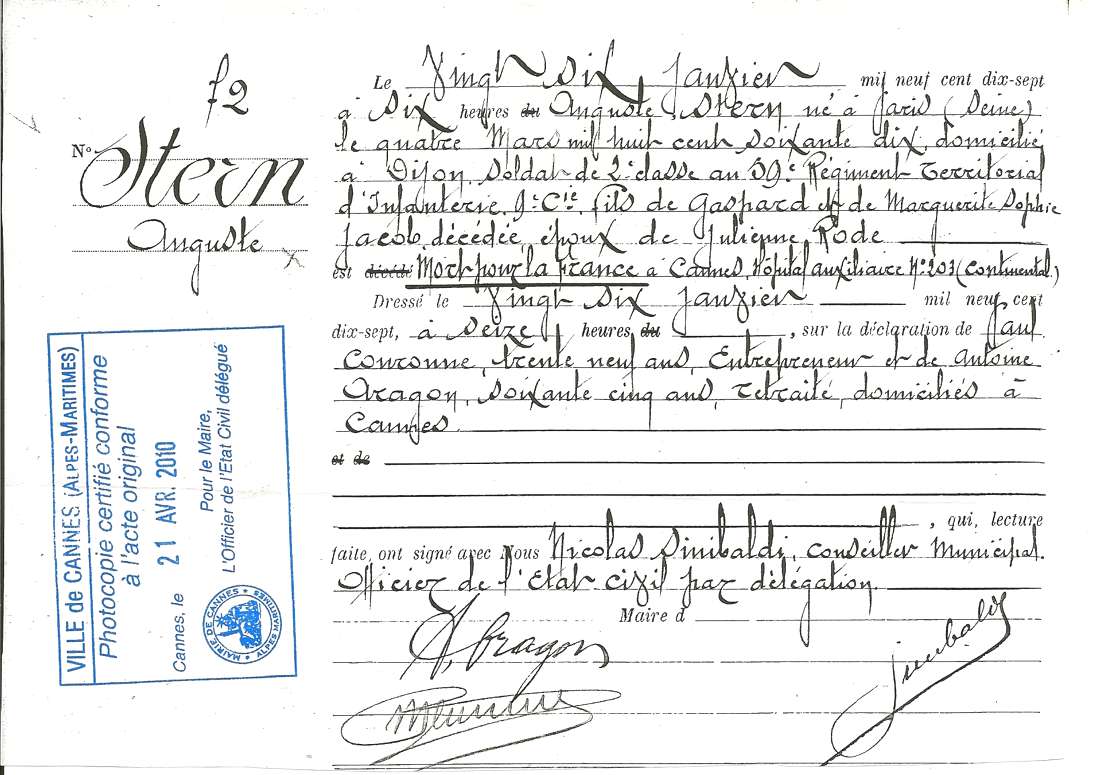 72
N° Stern
Auguste
Le Vingt six Janvier mil neuf cent dix-sept
à six heures du Auguste Stern né à Paris (Seine)
le quatre Mars mil huit cent soixante dix, domicilié
à Dijon, Soldat de 2e classe au 59e Régiment Territorial
d'Infanterie, 9e Cie, fils de Gaspard et de Marguerite Sophie
Jacob, décédée, époux de Julienne Rode
est décédé Mort pour la France à Cannes, Hôpital auxiliaire N° 203 (Continental)
Dressé le Vingt six Janvier mil neuf cent
dix-sept, à seize heures du , sur la déclaration de Paul
Couronne, trente neuf ans, Entrepreneur et de Antoine
Aragon, soixante cinq ans, retraité, domiciliés à
Cannes
et de
, qui, lecture
faite, ont signé avec Nous Nicolas Sinibaldi, Conseiller Municipal.
Officier de l'Etat civil par délégation
Maire d
A. Aragon
Sinibaldi
VILLE de CANNES (ALPES-MARITIMES)
Photocopie certifié conforme
à l'acte original
Cannes, le 21 AVR. 2010
Pour le Maire,
L'Officier de l'Etat Civil délégué
MAIRIE DE CANNES
ALPES MARITIMES